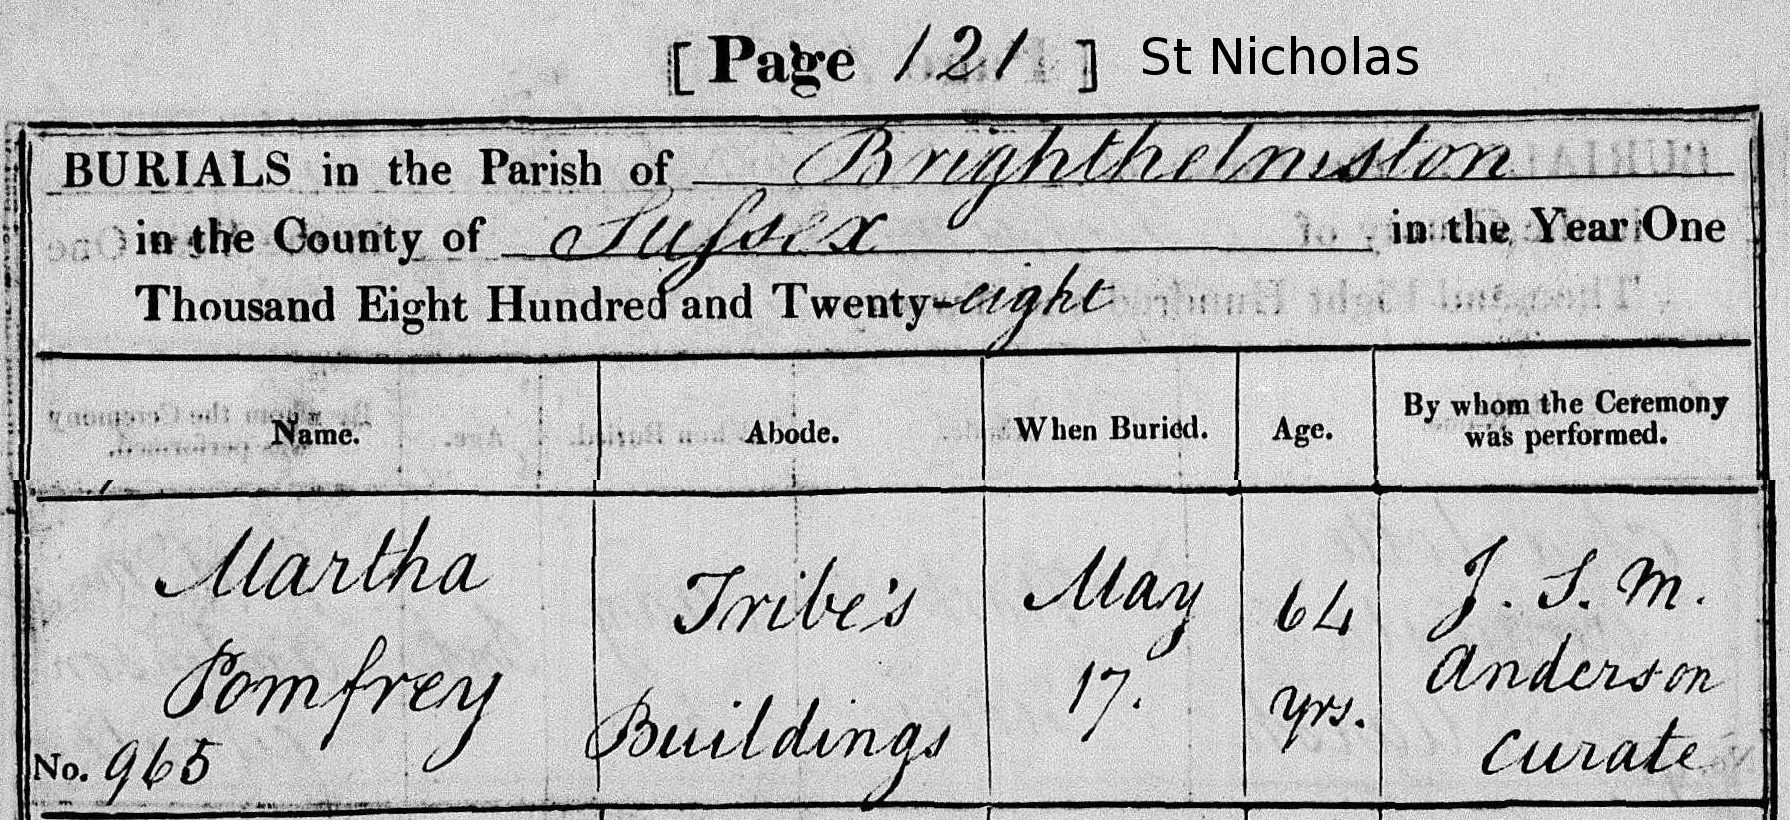 [ Page 121 ] St Nicholas
BURIALS in the Parish of Brighthelmston
in the County of Sussex in the Year One
Thousand Eight Hundred and Twenty-eight
Name. Abode. When Buried. Age. By whom the Ceremony
was performed.
Martha Tribe's May 64 J. S. M.
Pomfrey Buildings 17. yrs. Anderson
No. 965 curate